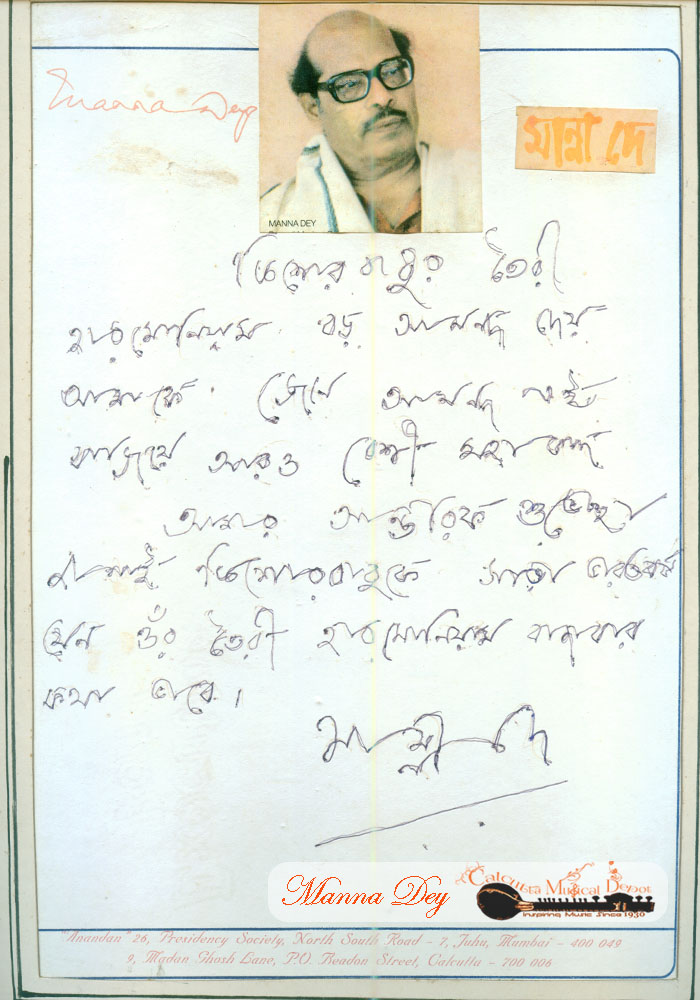 Manna Dey
মান্না দে
MANNA DEY
কিশোর বাবুর তৈরী
হারমোনিয়াম বড় আনন্দ দেয়
আমাকে আনন্দ পাই
বাজিয়ে আরও বেশী
আমার আন্তরিক শুভেচ্ছা
জানাই কিশোরবাবুকে সারা ভারতবর্ষ
যেন ওঁর তৈরী হারমোনিয়াম বাজাবার
কথা ভাবে।
মান্না দে
Manna Dey
Calcutta Musical Depot
Inspiring Music Since 1936
"Anandan" 26, Presidency Society, North South Road - 7, Juhu, Mumbai - 400 049
9, Madan Ghosh Lane, P.O. Beadon Street, Calcutta - 700 006